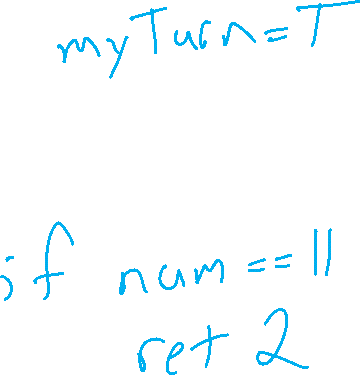 myTurn=T
if num == 11
ret 2